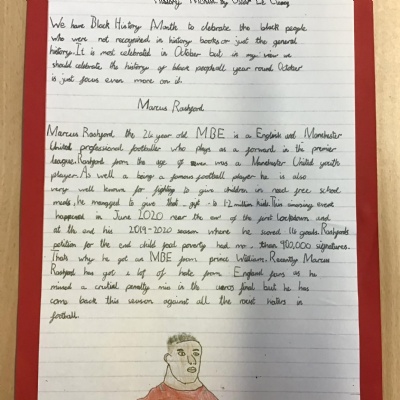 History Month by
We have Black History Month to celebrate the black people
who were not recognised in history books or just the general
history. It is most celebrated in October but in my view we
should celebrate the history of black people all year round October
is just focus even more on it.
Marcus Rashford
Marcus Rashford the 24 year old MBE is a English and Manchester
United professional footballer who plays as a forward in the premier
league. Rashford from the age of seven was a Manchester United youth
player. As well a being a famous football player he is also
very well known for fighting to give children in need free school
meals, he managed to give that gift to 1.2 million kids. This amazing event
happened in June 2020 near the end of the first lockdown and
at the end his 2019-2020 season where he scored goals. Rashfords
petition for the end child food poverty had more than 900,000 signatures.
Thats why he got an MBE from prince William. Recently Marcus
Rashford has got a lot of hate from England fans as he
missed a crucial penalty min in the euros final but he has
come back this season against all the haters in
football.